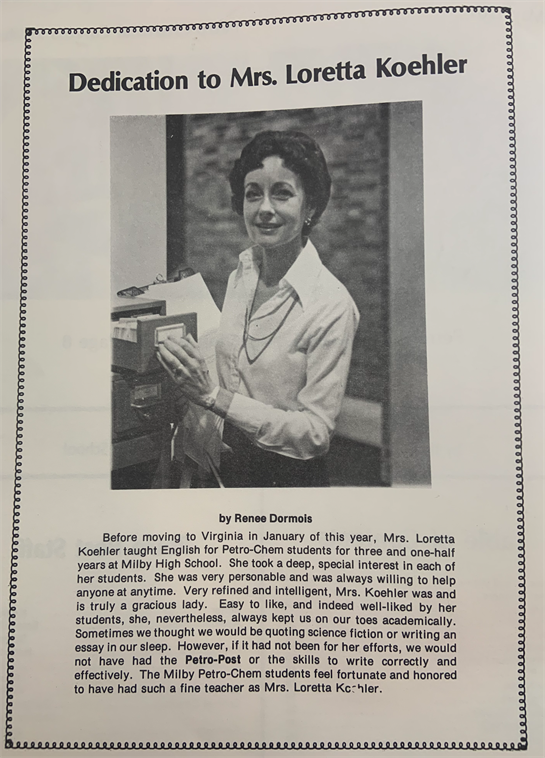 Dedication to Mrs. Loretta Koehler
by Renee Dormois
Before moving to Virginia in January of this year, Mrs. Loretta
Koehler taught English for Petro-Chem students for three and one-half
years at Milby High School. She took a deep, special interest in each of
her students. She was very personable and was always willing to help
anyone at anytime. Very refined and intelligent, Mrs. Koehler was and
is truly a gracious lady. Easy to like, and indeed well-liked by her
students, she, nevertheless, always kept us on our toes academically.
Sometimes we thought we would be quoting science fiction or writing an
essay in our sleep. However, if it had not been for her efforts, we would
not have had the Petro-Post or the skills to write correctly and
effectively. The Milby Petro-Chem students feel fortunate and honored
to have had such a fine teacher as Mrs. Loretta Koehler.